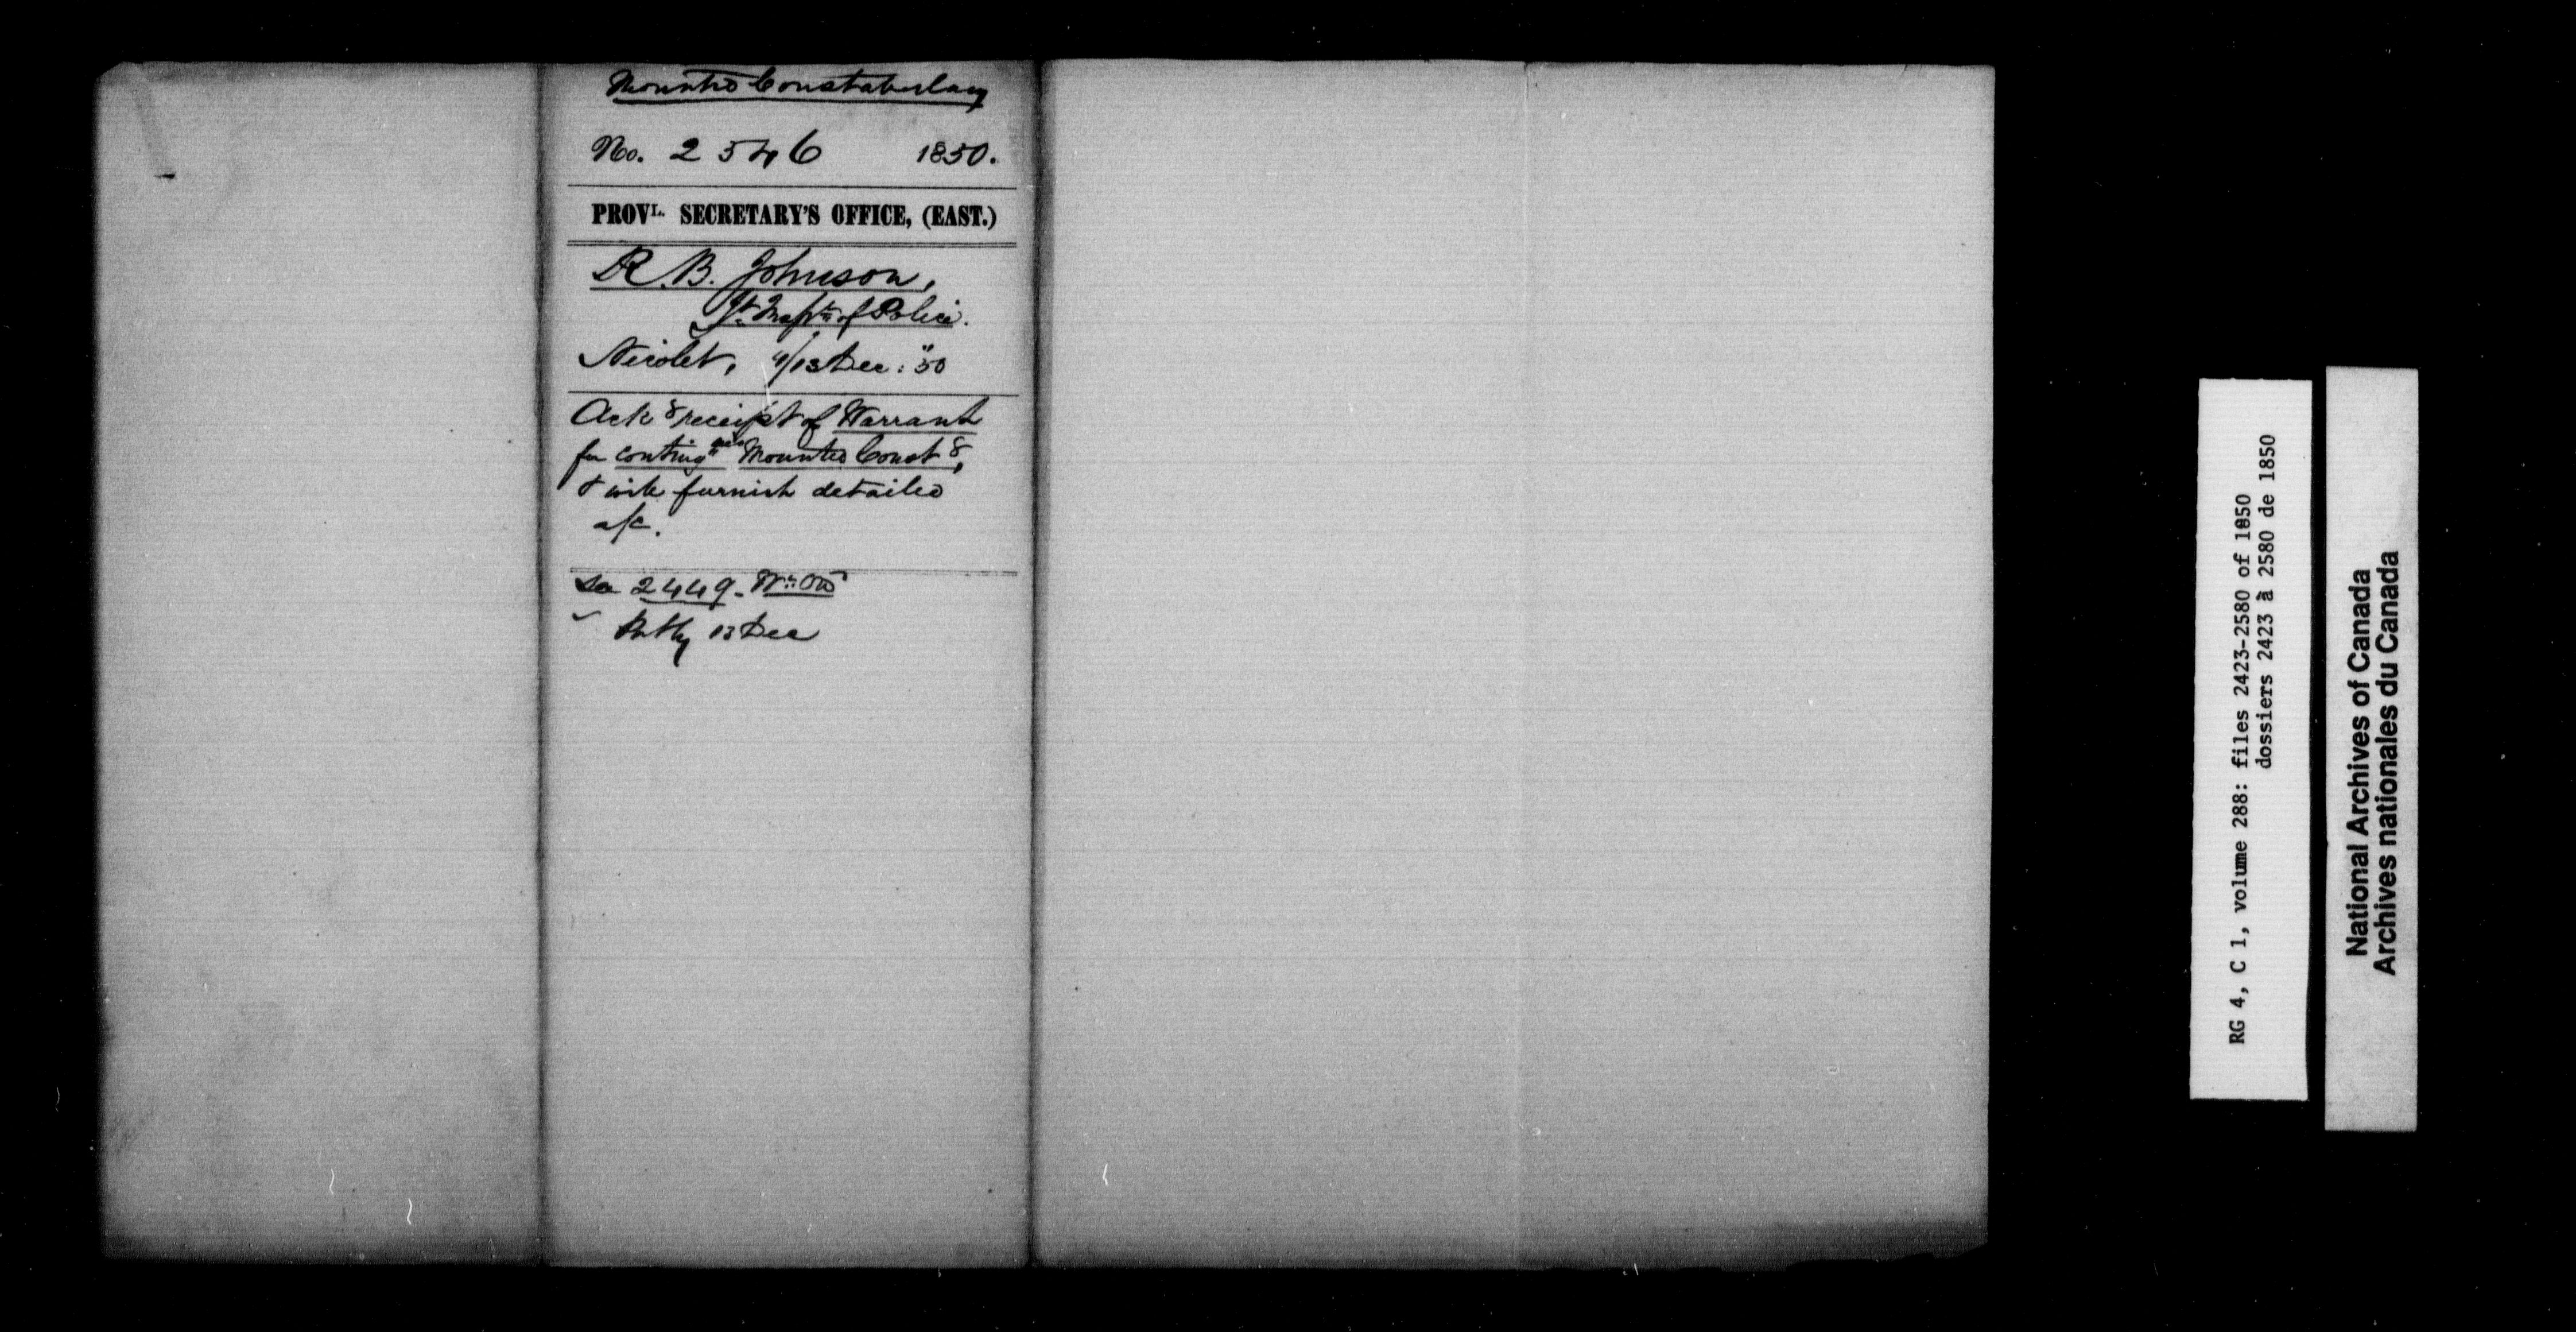 Mounted Constabulary
No. 2546 1850.
PROVL. SECRETARY'S OFFICE, (EAST.)
R. B. Johnson,
of Police.
Nicolet, 9/13 Dec: "50
Ackg receipt of Warrant
for conting Mounted Consty,
& will furnish detailed
a/c.
See 2449.
13 Dec
RG 4, C 1, volume 288: files 2423-2580 of 1850
dossiers 2423 à 2580 de 1850
National Archives of Canada
Archives nationales du Canada